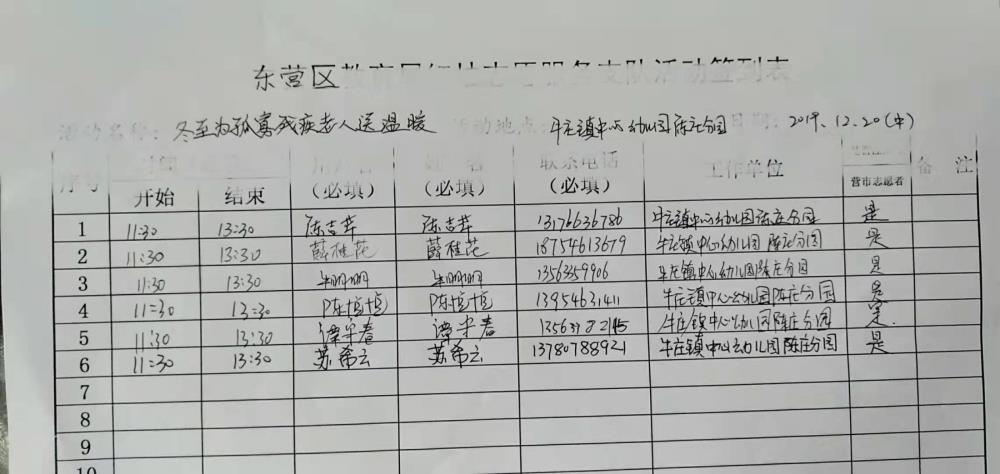 东营区教育局红烛志愿服务支队活动签到表
活动名称：冬至为孤寡残疾老人送温暖 活动地点：牛庄镇中心幼儿园陈庄分园 日期：2019.12.20(中)
序号 时间 用户名 姓名 联系电话 工作单位 备注
开始 结束 （必填） （必填） （必填） 营市志愿者
1 11:30 13:30 陈吉芹 陈吉芹 13176636786 牛庄镇中心幼儿园陈庄分园 是
2 11:30 13:30 薛桂花 薛桂花 18754613679 牛庄镇中心幼儿园陈庄分园 是
3 11:30 13:30 牛明明 牛明明 1356359906 牛庄镇中心幼儿园陈庄分园 是
4 11:30 13:30 陈恒恒 陈恒恒 13954631411 牛庄镇中心幼儿园陈庄分园 是
5 11:30 13:30 谭守春 谭守春 牛庄镇中心幼儿园陈庄分园 是
6 11:30 13:30 苏希云 苏希云 13780788921 牛庄镇中心幼儿园陈庄分园 是
7
8
9
10